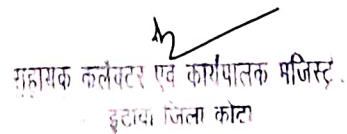 सहायक कलेक्टर एवं कार्यपालक मजिस्ट्रे.
इटावा जिला कोटा